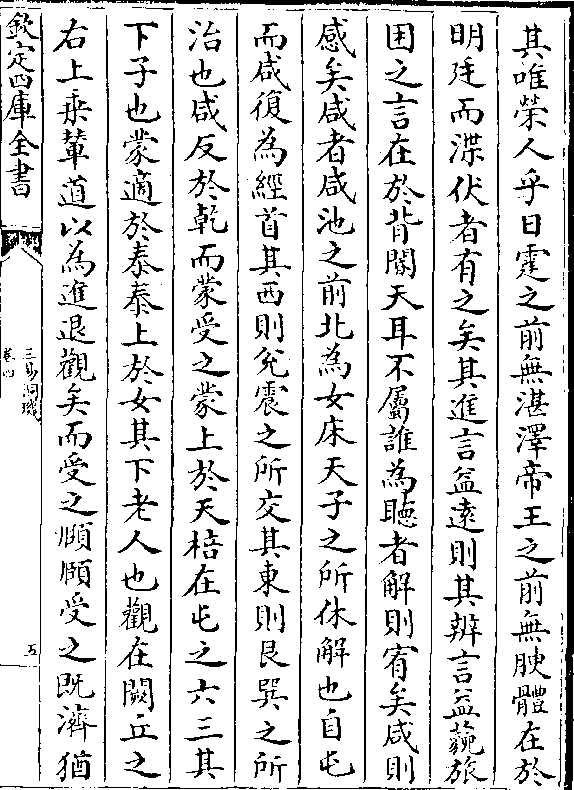 其唯榮人乎日霆之前無湛澤帝王之前無腴體在於
明廷而渫伏者有之矣其進言益遠則其辨言益蓺旅
困之言在於背閽天耳不屬誰為聽者解則宥矣咸則
感矣咸者咸池之前北為女床天子之所休解也自屯
而咸復為經首其西則兊震之所交其東則艮巽之所
治也咸反於乾而蒙受之蒙上於天棓在屯之六三其
下子也蒙適於泰泰上於女其下老人也觀在闕丘之
右上乗輦道以為進退觀矣而受之頤頤受之既濟猶
欽定四庫全書
三易洞璣
卷四
五